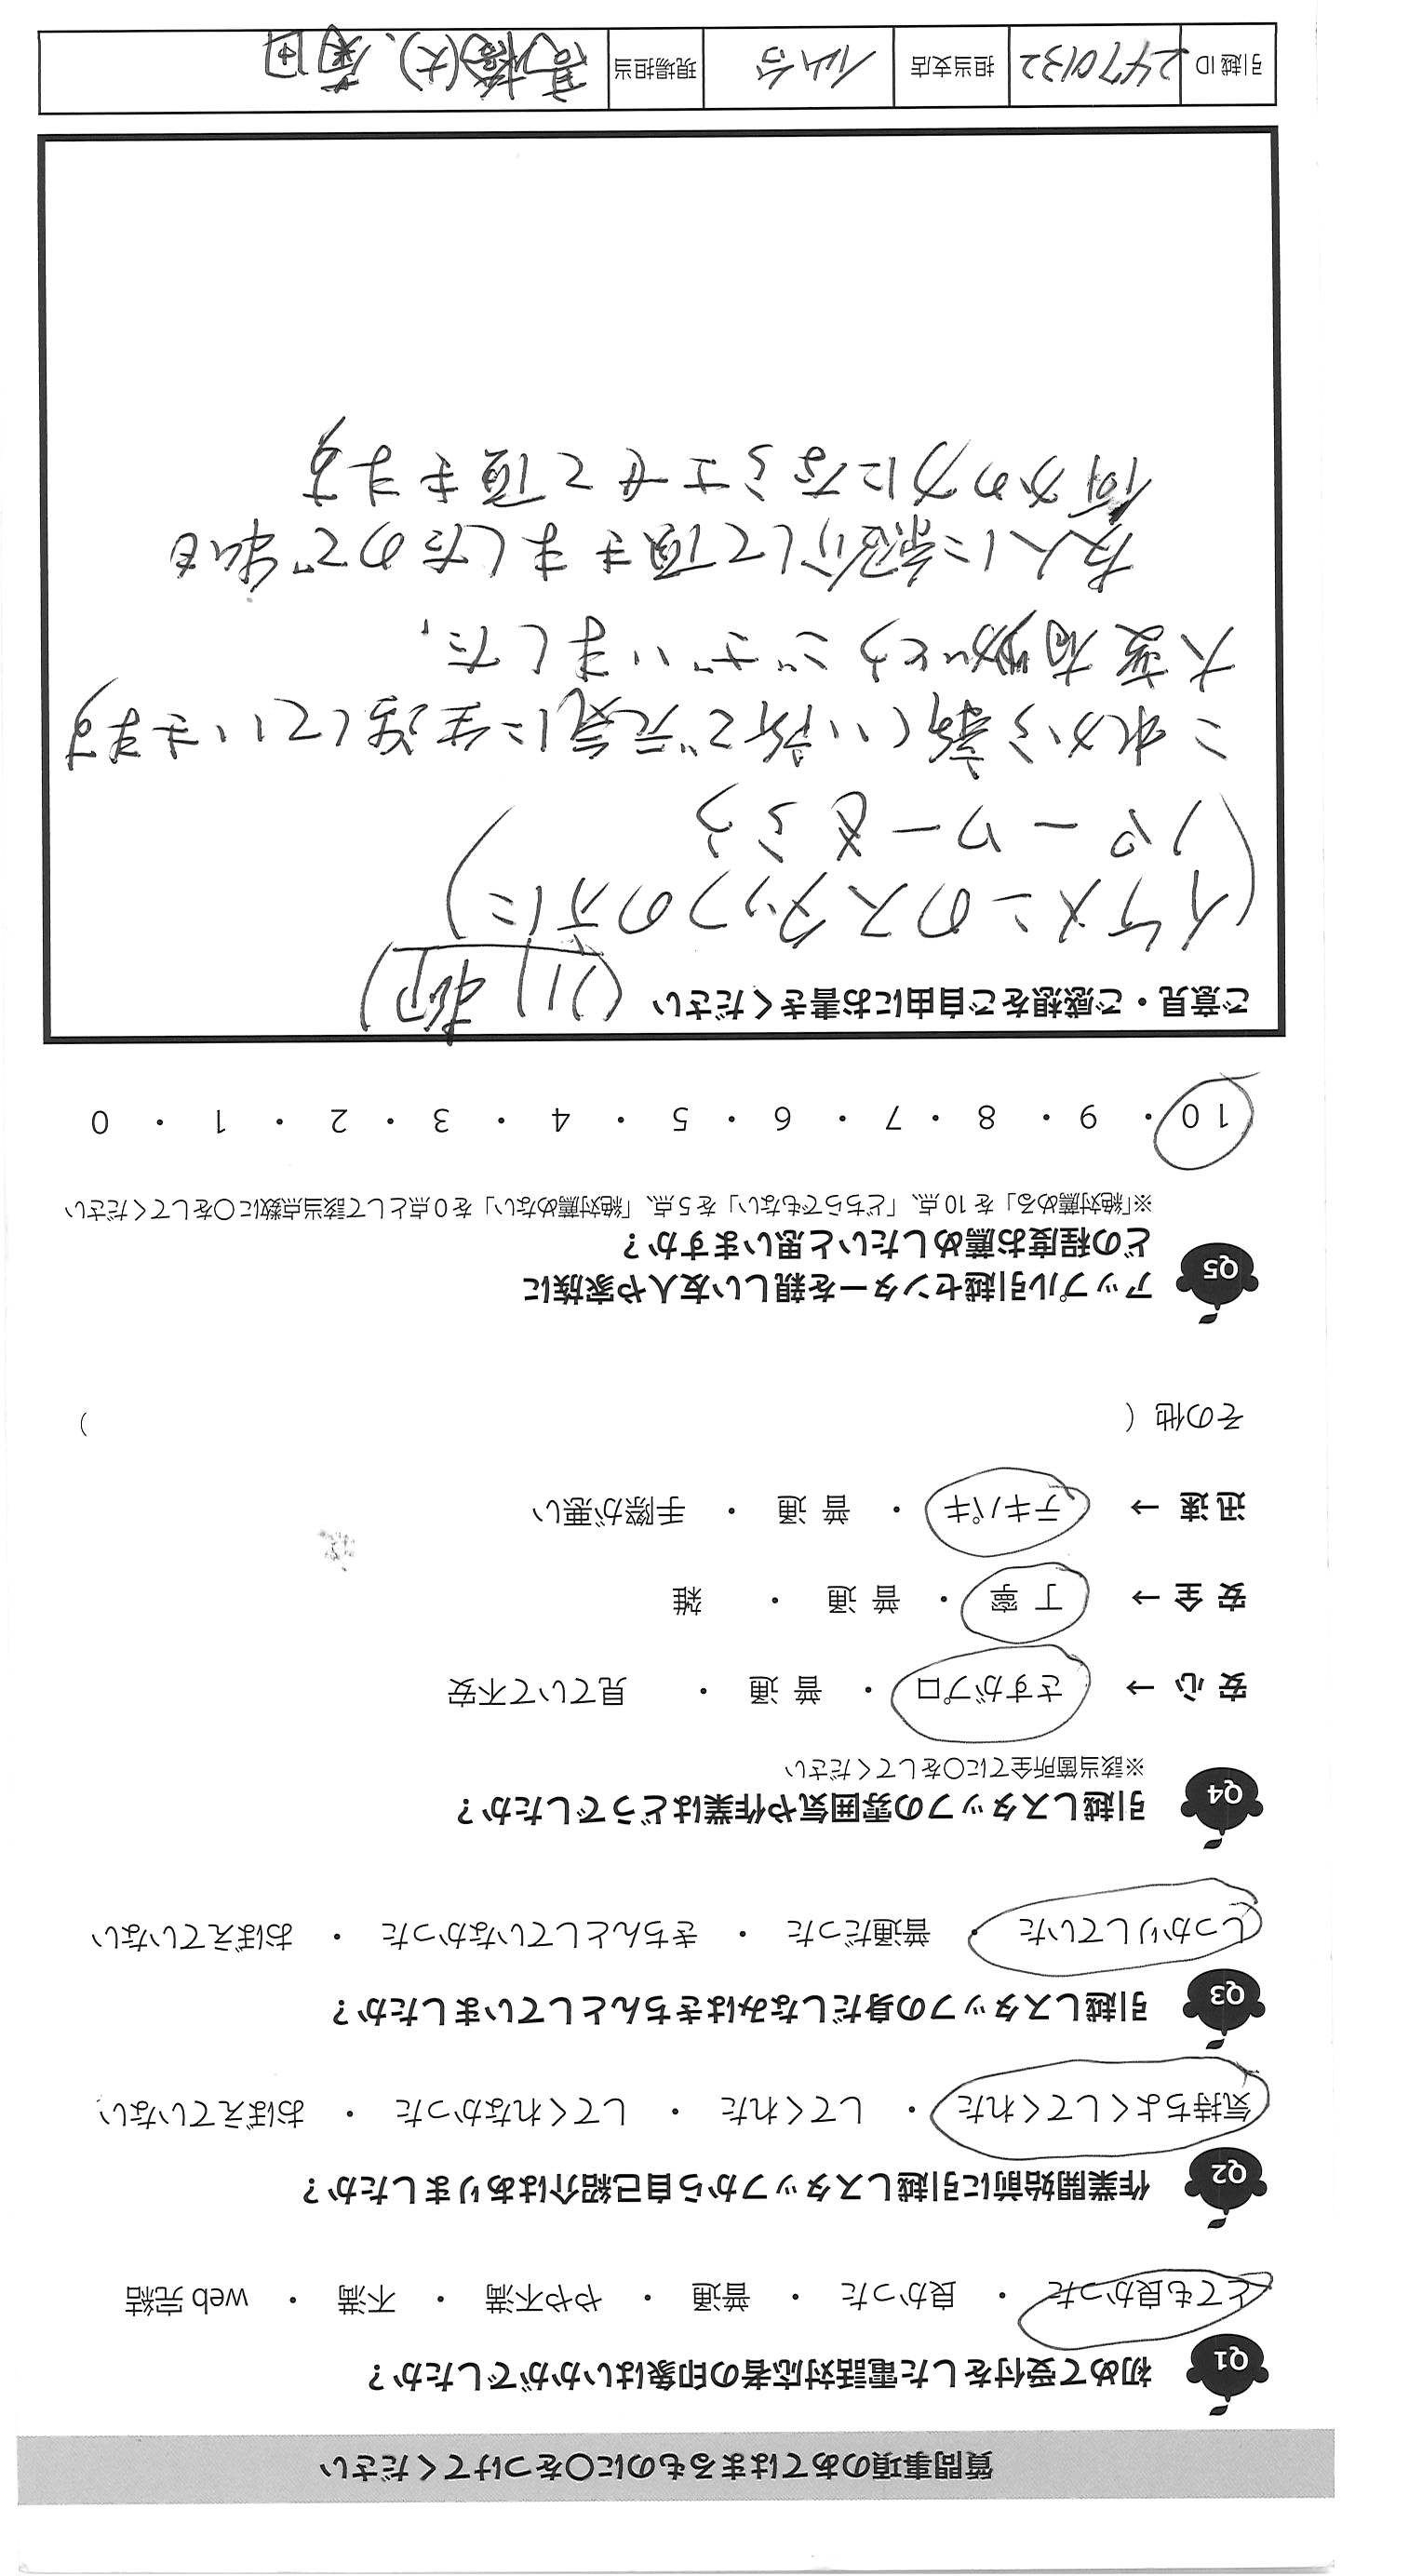 質問事項のあてはまるものに〇をつけてください
Q1 初めて受付をした電話対応者の印象はいかがでしたか？
とても良かった ・ 良かった ・ 普通 ・ やや不満 ・ 不満 ・ web 完結
Q2 作業開始前に引越しスタッフから自己紹介はありましたか？
気持ちよくしてくれた ・ してくれた ・ してくれなかった ・ おぼえていない
Q3 引越しスタッフの身だしなみはきちんとしていましたか？
しっかりしていた ・ 普通だった ・ きちんとしていなかった ・ おぼえていない
Q4 引越しスタッフの雰囲気や作業はどうでしたか？
※該当箇所全てに〇をしてください
安 心 → さすがプロ ・ 普 通 ・ 見ていて不安
安 全 → 丁 寧 ・ 普 通 ・ 雑
迅 速 → テキパキ ・ 普 通 ・ 手際が悪い
その他（ ）
Q5 アップル引越センターを親しい友人や家族に
どの程度お薦めしたいと思いますか？
※「絶対薦める」を 10 点、「どちらでもない」を 5 点、「絶対薦めない」を 0 点として該当点数に〇をしてください
10 ・ 9 ・ 8 ・ 7 ・ 6 ・ 5 ・ 4 ・ 3 ・ 2 ・ 1 ・ 0
ご意見・ご感想をご自由にお書きください (川柳)
(イケメンのスタッフの方に
パーワーもらう)
これから新しい所で元気に生活していきます
大変有難とうございました。
友人に紹介して頂きましたので私も
何かの力にならさせて頂きます
引越 ID 2470132 担当支店 仙台 現場担当 高橋(大)、菊田